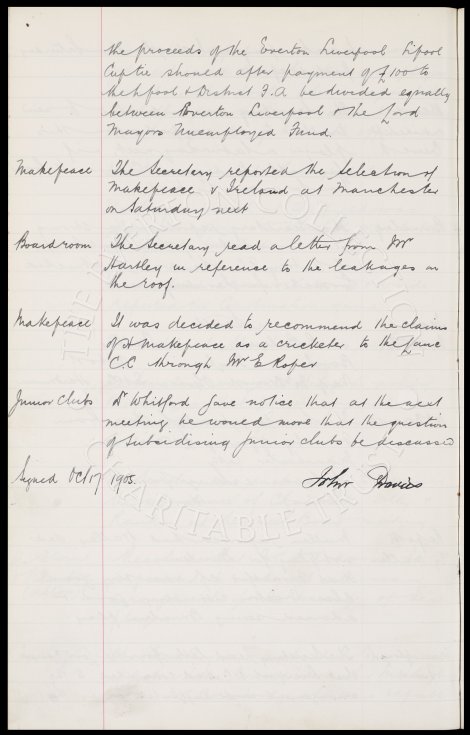 the proceeds of the Everton Liverpool Lipool
Cup tie should after payment of £100 to
the Lpool & District F.A be divided equally
between Everton Liverpool & the Lord
Mayors Unemployed Fund.
Makepeace The Secretary reported the selection of
Makepeace v Ireland at Manchester
on Saturday next
Boardroom The Secretary read a letter from Mr
Hartley in reference to the leakages in
the roof.
Makepeace It was decided to recommend the claims
of H Makepeace as a cricketer to the Lanc
C.C through Mr E Roper
Junior Clubs Dr Whitford gave notice that at the next
meeting he would move that the question
of subsidising Junior clubs be discussed
Signed Oct 17 1905. John Davies
THE EVERTON COLLECTION
CHARITABLE TRUST